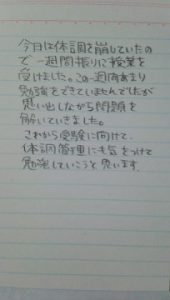 今日は体調を崩していたの
で一週間振りに授業を
受けました。この一週間あまり
勉強をできていませんでしたが
思い出しながら問題を
解いていきました。
これから受験に向けて、
体調管理にも気をつけて
勉強していこうと思います。